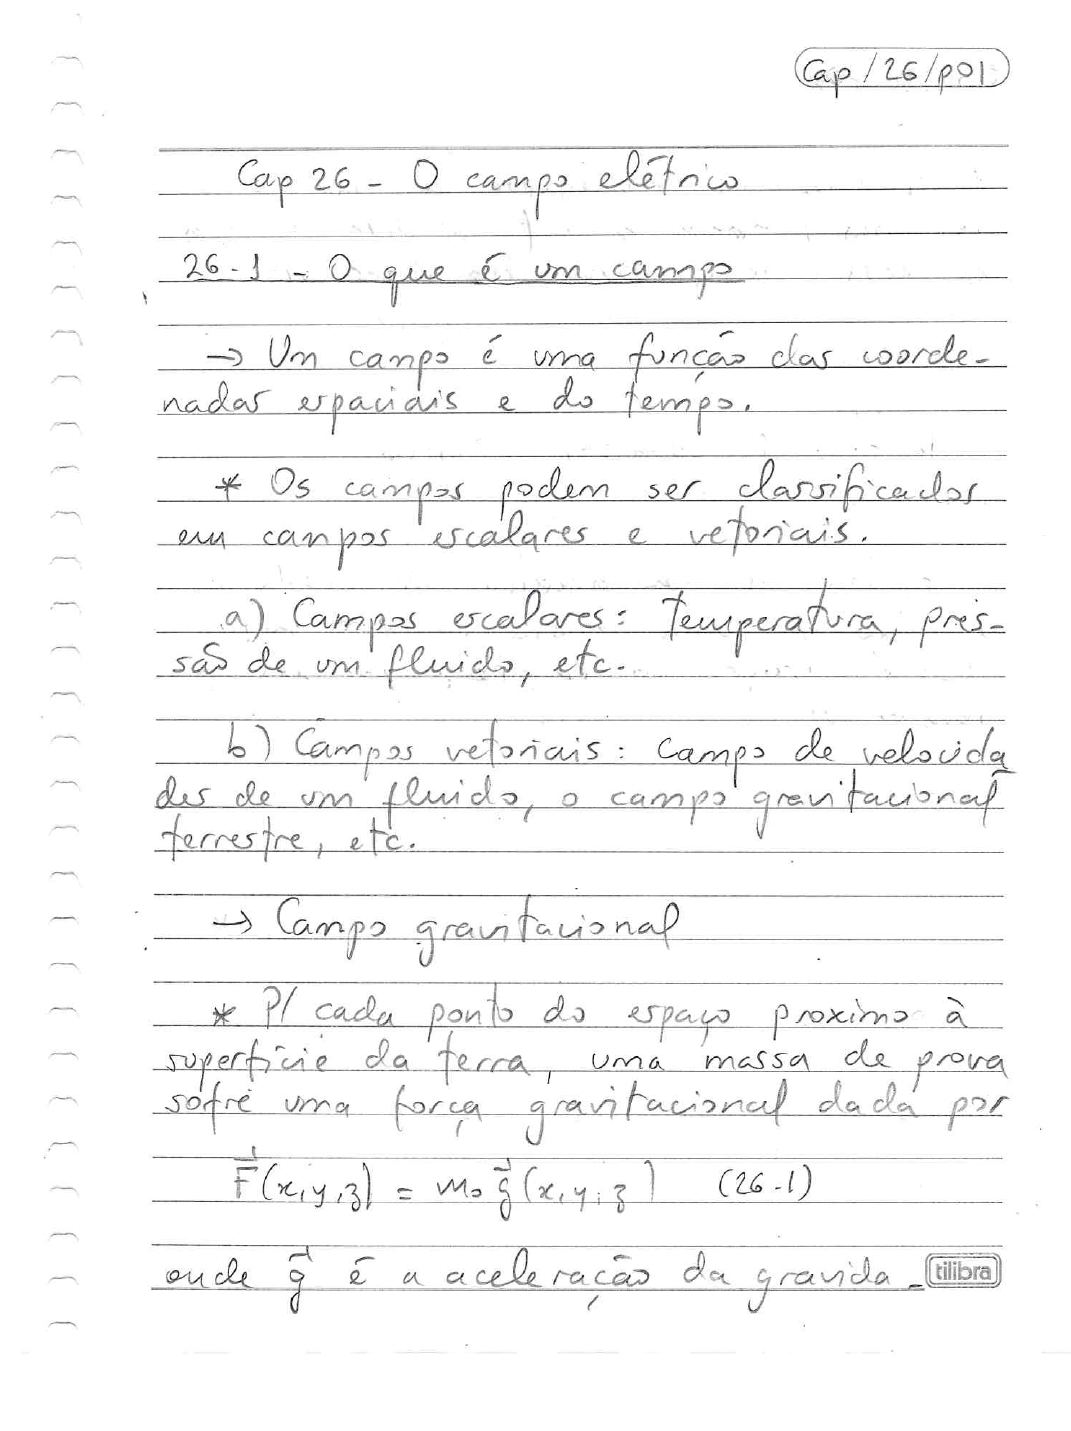 Cap/26/p01
Cap 26 - O campo elétrico
26-1 - O que é um campo
→ Um campo é uma função das coorde-
nadas espaciais e do tempo.
* Os campos podem ser classificados
em campos escalares e vetoriais.
a) Campos escalares: Temperatura, pres-
são de um fluido, etc.
b) Campos vetoriais: Campo de velocida
des de um fluido, o campo gravitacional
terrestre, etc.
→ Campo gravitacional
* P/ cada ponto do espaço proximo à
superfície da terra, uma massa de prova
sofre uma força gravitacional dada por
F⃗(x,y,z) = m₀ g⃗(x,y,z) (26-1)
onde g⃗ é a aceleração da gravida-
tilibra